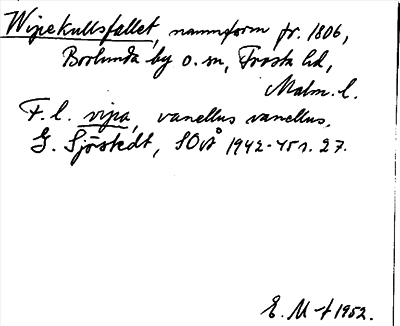 Wipekullsfallet, namnform fr. 1806,
Borlunda by o. sn, Frosta hd,
Malm. l.
F. l. vipa, vanellus vanellus.
G. Sjöstedt, SOVÅ 1942-45 s. 27.
E. M-t 1952.